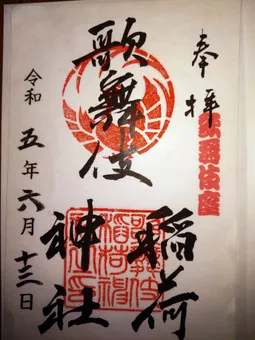 奉拝
歌舞伎座
歌舞伎
稲荷
神社
令和五年六月十三日